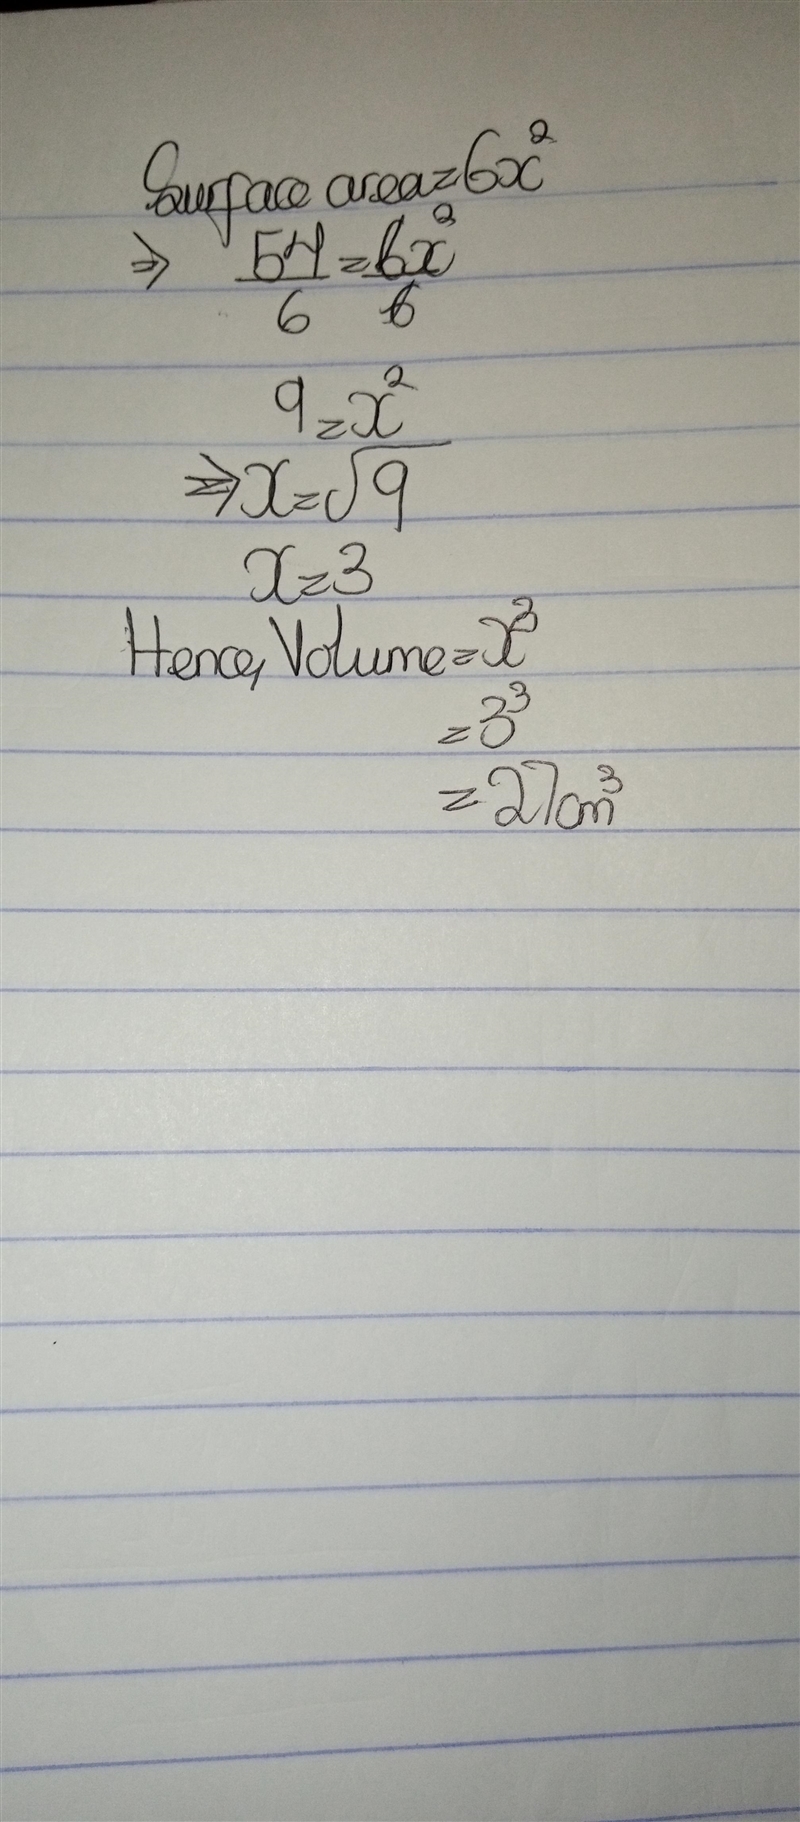 Surface area = 6x²
⇒ 54/6 = 6x²/6
9 = x²
⇒ x = √9
x = 3
Hence, Volume = x³
= 3³
= 27cm³